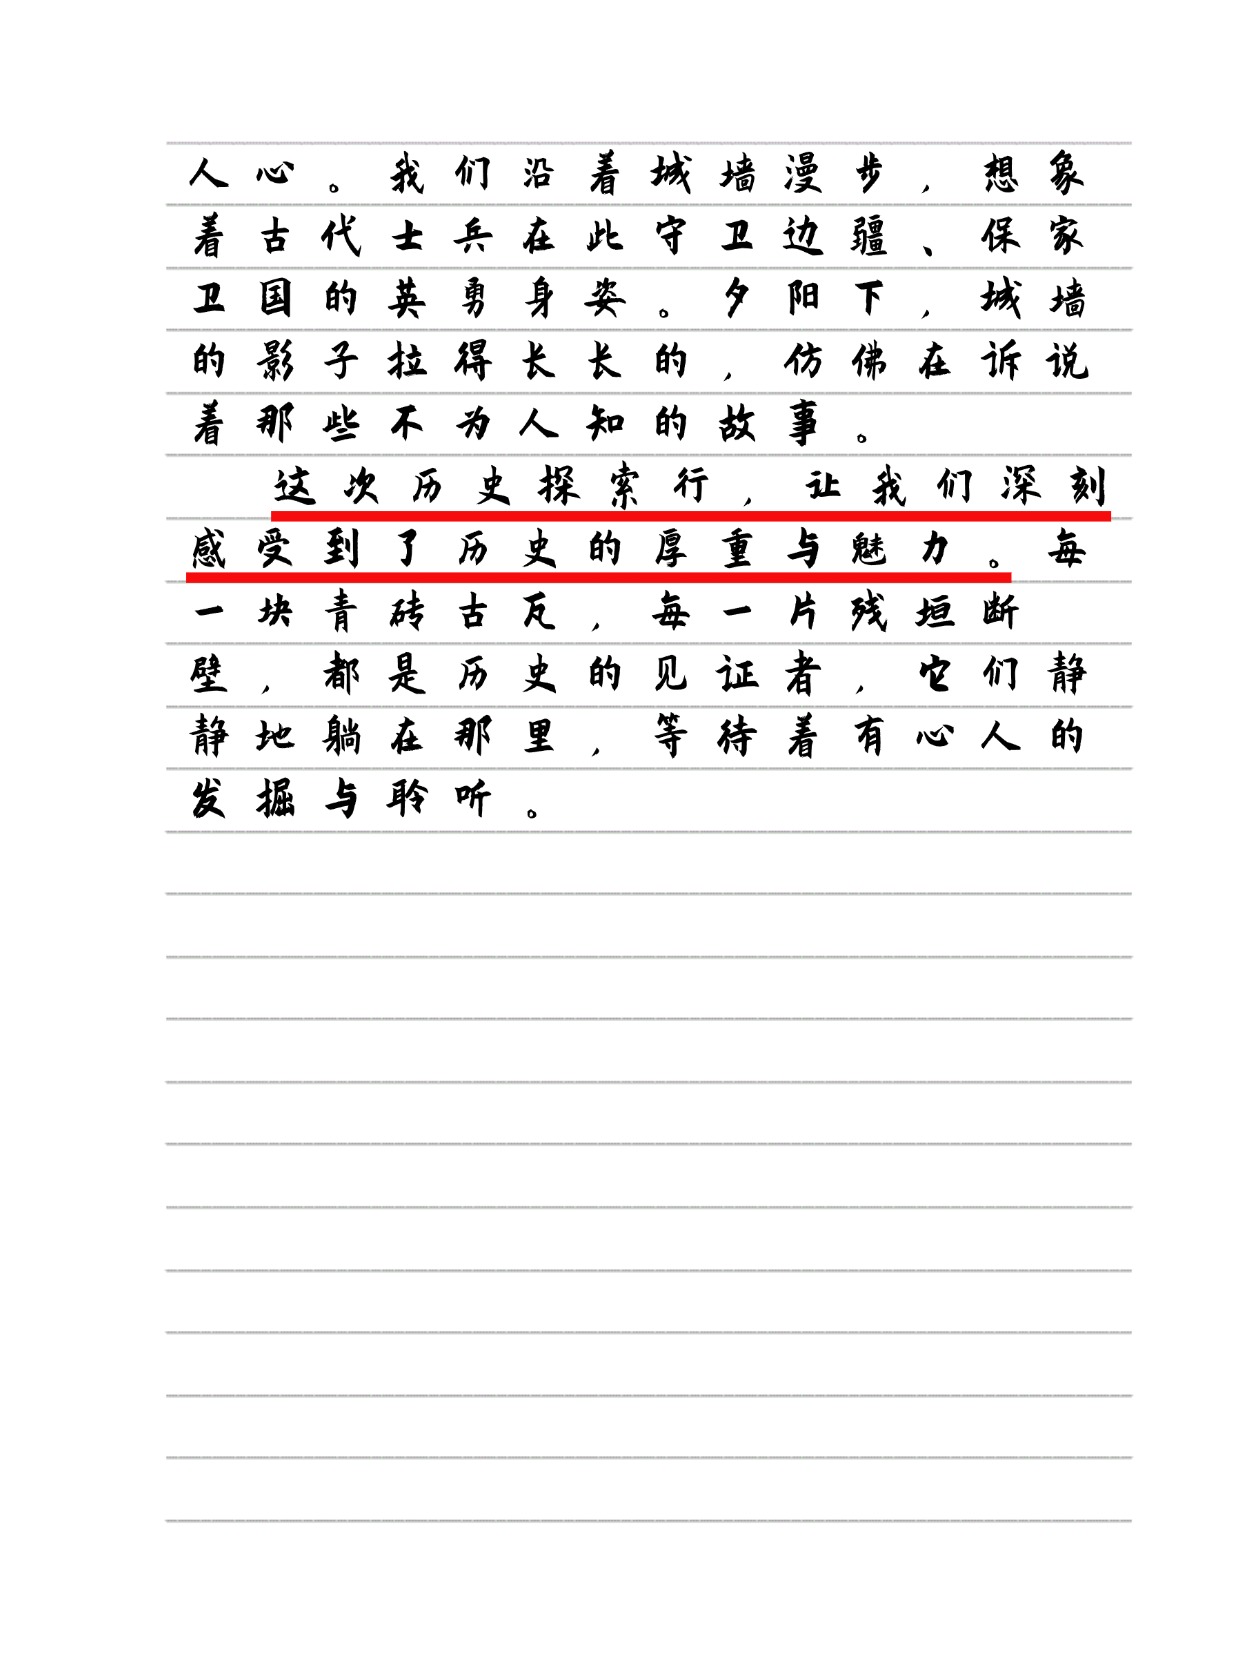 人心。我们沿着城墙漫步，想象
着古代士兵在此守卫边疆、保家
卫国的英勇身姿。夕阳下，城墙
的影子拉得长长的，仿佛在诉说
着那些不为人知的故事。
这次历史探索行，让我们深刻
感受到了历史的厚重与魅力。每
一块青砖古瓦，每一片残垣断
壁，都是历史的见证者，它们静
静地躺在那里，等待着有心人的
发掘与聆听。